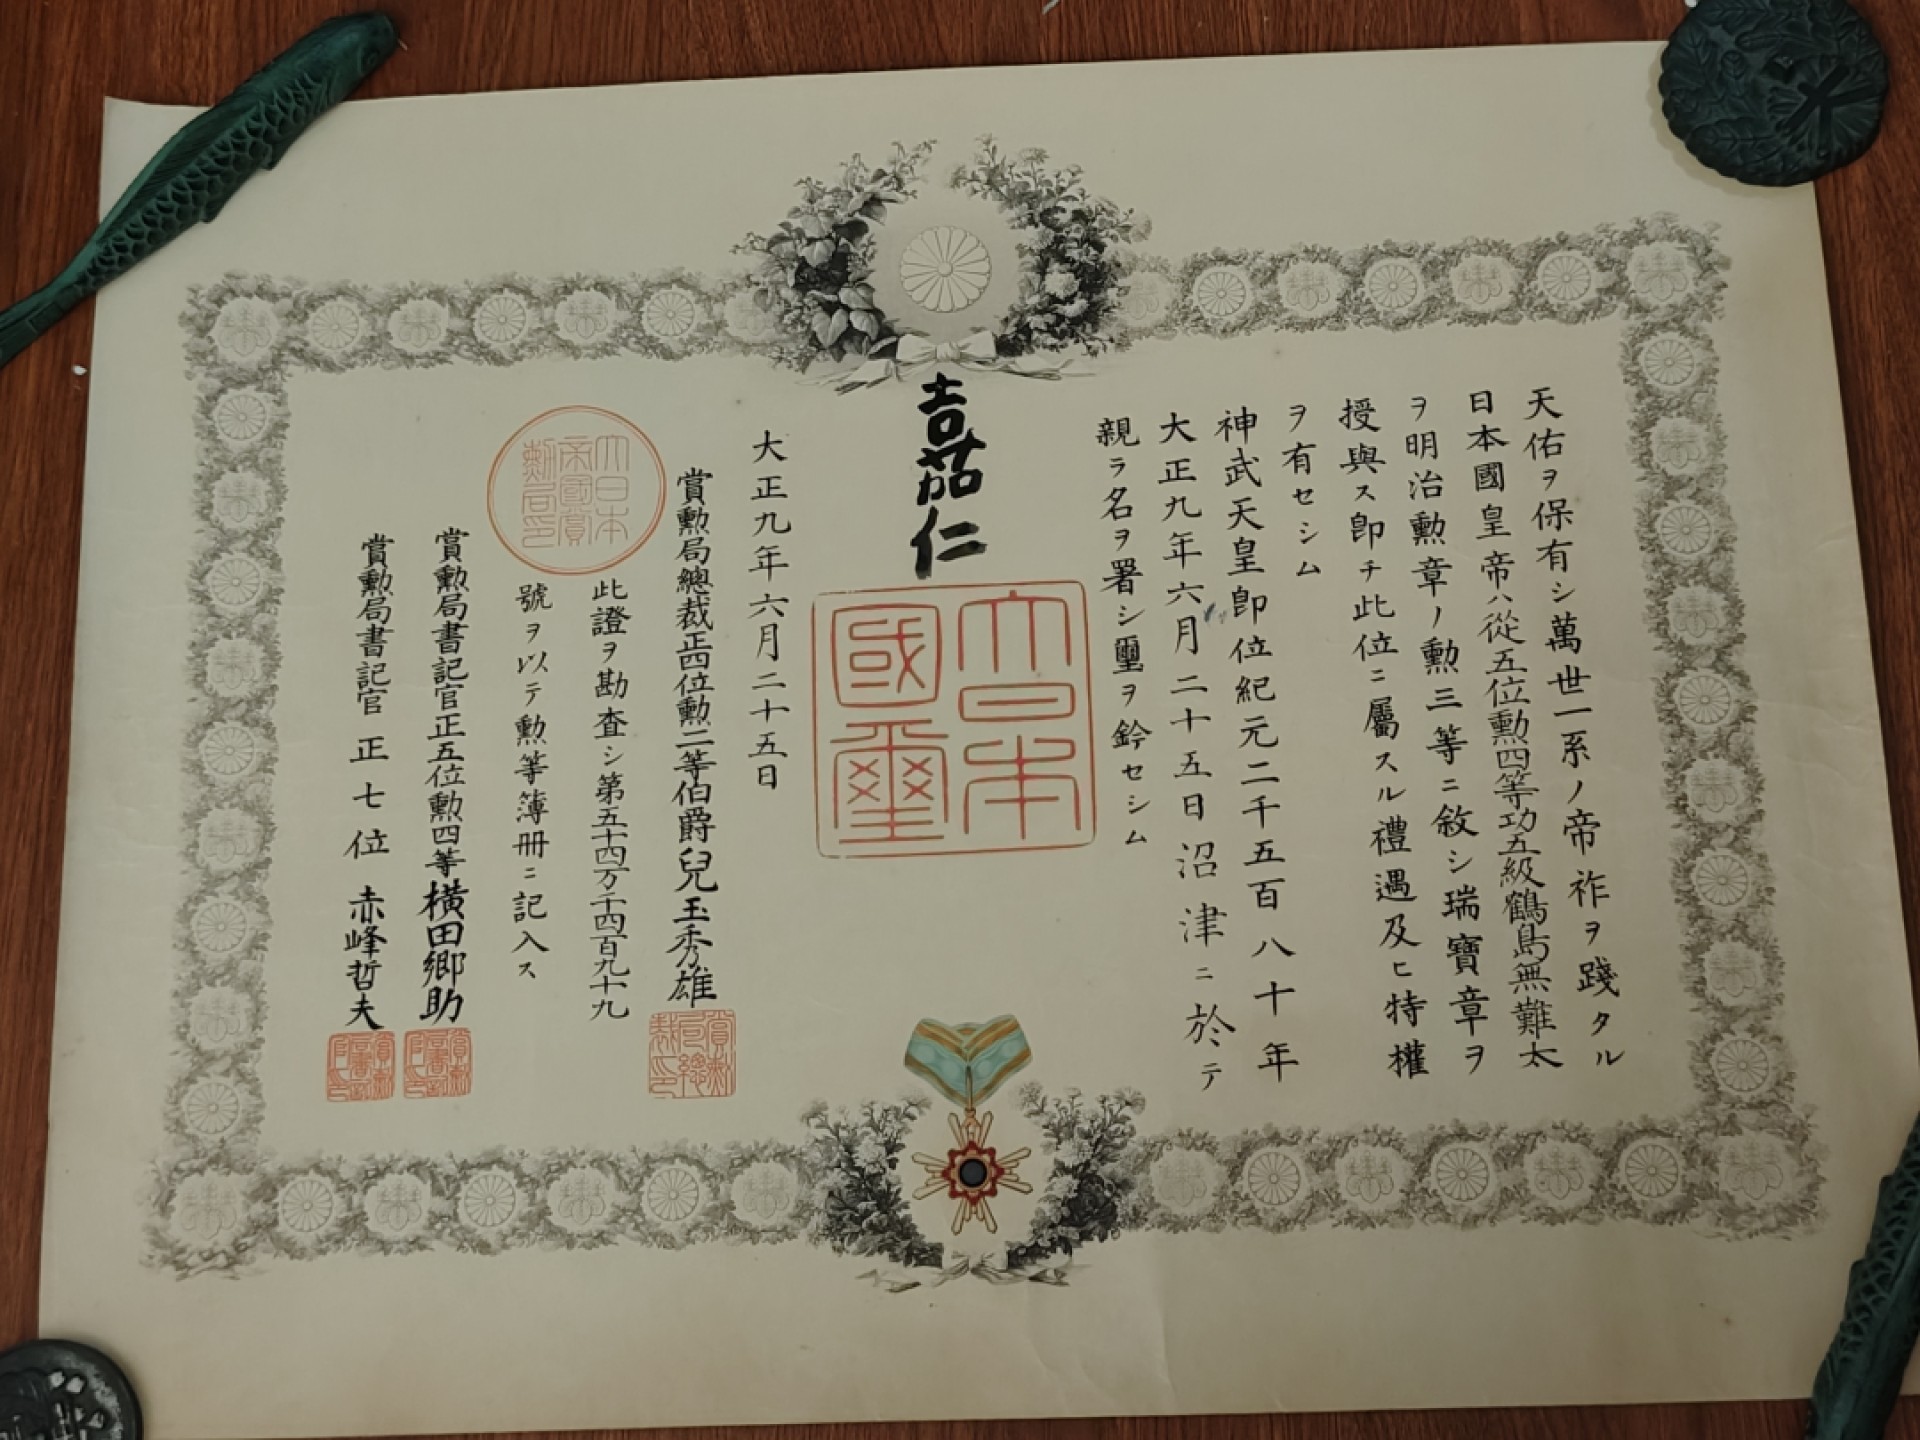 天佑ヲ保有シ萬世一系ノ帝祚ヲ踐タル
日本國皇帝ハ從五位勲四等功五級鶴島無難太
ヲ明治勲章ノ勲三等ニ敘シ瑞寶章ヲ
授與ス卽チ此位ニ屬スル禮遇及ヒ特權
ヲ有セシム
神武天皇卽位紀元二千五百八十年
大正九年六月二十五日沼津ニ於テ
親ラ名ヲ署シ璽ヲ鈐セシム
嘉仁
大日本
國璽
大正九年六月二十五日
賞勲局總裁正四位勲二等伯爵兒玉秀雄
賞勲局總裁印
此證ヲ勘査シ第五十四万千四百九十九
號ヲ以テ勲等簿册ニ記入ス
大日本帝國賞勲局印
賞勲局書記官正五位勲四等橫田鄉助
賞勲局書記官印
賞勲局書記官正七位赤峰哲夫
賞勲局書記官印